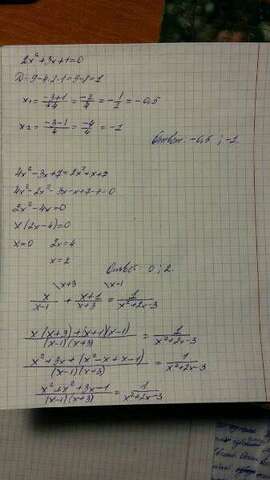 2x²+3x+1=0
D=9-4·2·1=9-8=1
x₁ = (-3+1)/4 = -2/4 = -1/2 = -0,5
x₂ = (-3-1)/4 = -4/4 = -1
Ответ: -0,5 ; -1
4x²-3x+7=2x²+x+7
4x²-2x²-3x-x+7-7=0
2x²-4x=0
x(2x-4)=0
x=0 2x=4
x=2
Ответ: 0 ; 2.
\x+3 \x-1
x/(x-1) + (x+1)/(x+3) = 1/(x²+2x-3)
(x(x+3)+(x+1)(x-1))/((x-1)(x+3)) = 1/(x²+2x-3)
(x²+3x+(x²-x+x-1))/((x-1)(x+3)) = 1/(x²+2x-3)
(x²+x²+3x-1)/((x-1)(x+3)) = 1/(x²+2x-3)